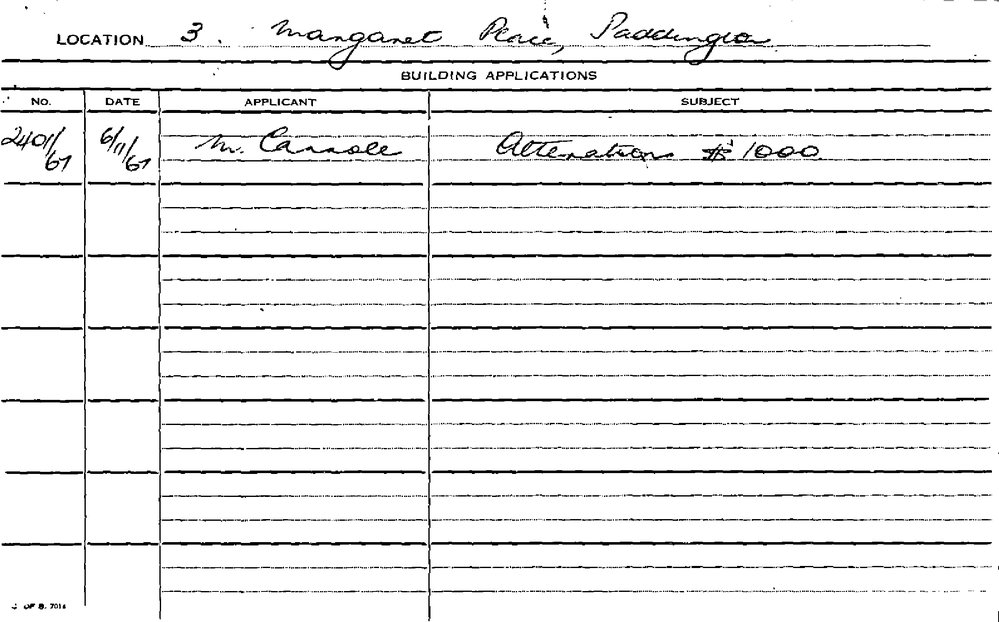 LOCATION 3. Margaret Place, Paddington
BUILDING APPLICATIONS
NO. DATE APPLICANT SUBJECT
2401/67 6/11/67 M. Carroll Alterations $1000
OF B. 7014